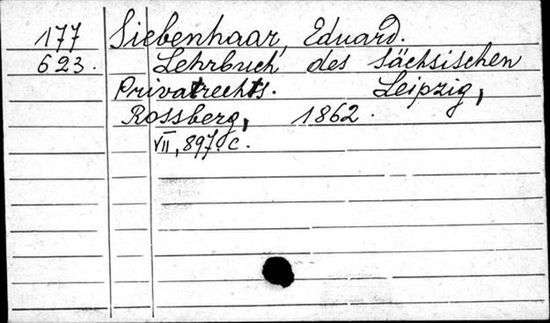 177 Siebenhaar, Eduard.
623. Lehrbuch des sächsischen
Privatrechts. Leipzig,
Rossberg, 1862.
VII, 897 c.